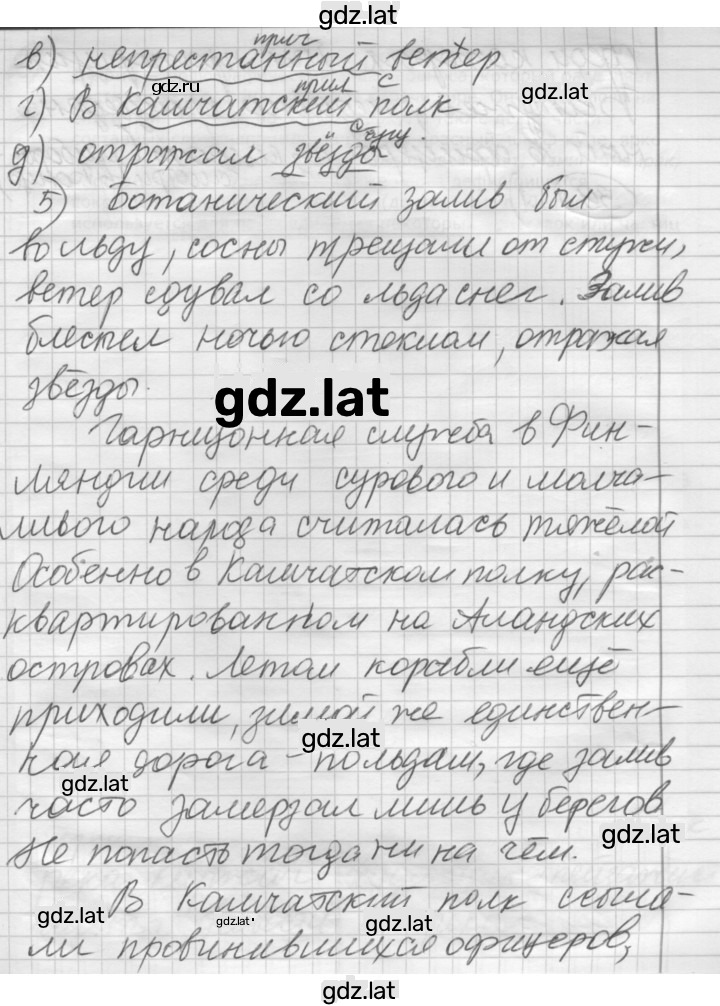 gdz.lat
прич
в) непрестанный ветер
gdz.ru
прил с
gdz.lat
г) В Камчатский полк
с сущ.
д) отражал звёзды
5) Ботанический залив был
во льду, сосны трещали от стужи,
ветер сдувал со льда снег. Залив
блестел ночью стеклом, отражая
звёзды.
gdz.lat
Гарнизонная служба в Фин-
ляндии среди сурового и молча-
ливого народа считалась тяжёлой
Особенно в Камчатском полку, рас-
квартированном на Аландских
островах. Летом корабли ещё
приходили, зимой же единствен-
gdz.lat
ная дорога - по льдам, где залив
gdz.lat
часто замерзал лишь у берегов
gdz.lat
Не попасть тогда ни на чём.
В Камчатский полк ссыла-
gdz.lat
gdz.lat
gdz.lat
ли провинившихся офицеров,
gdz.lat